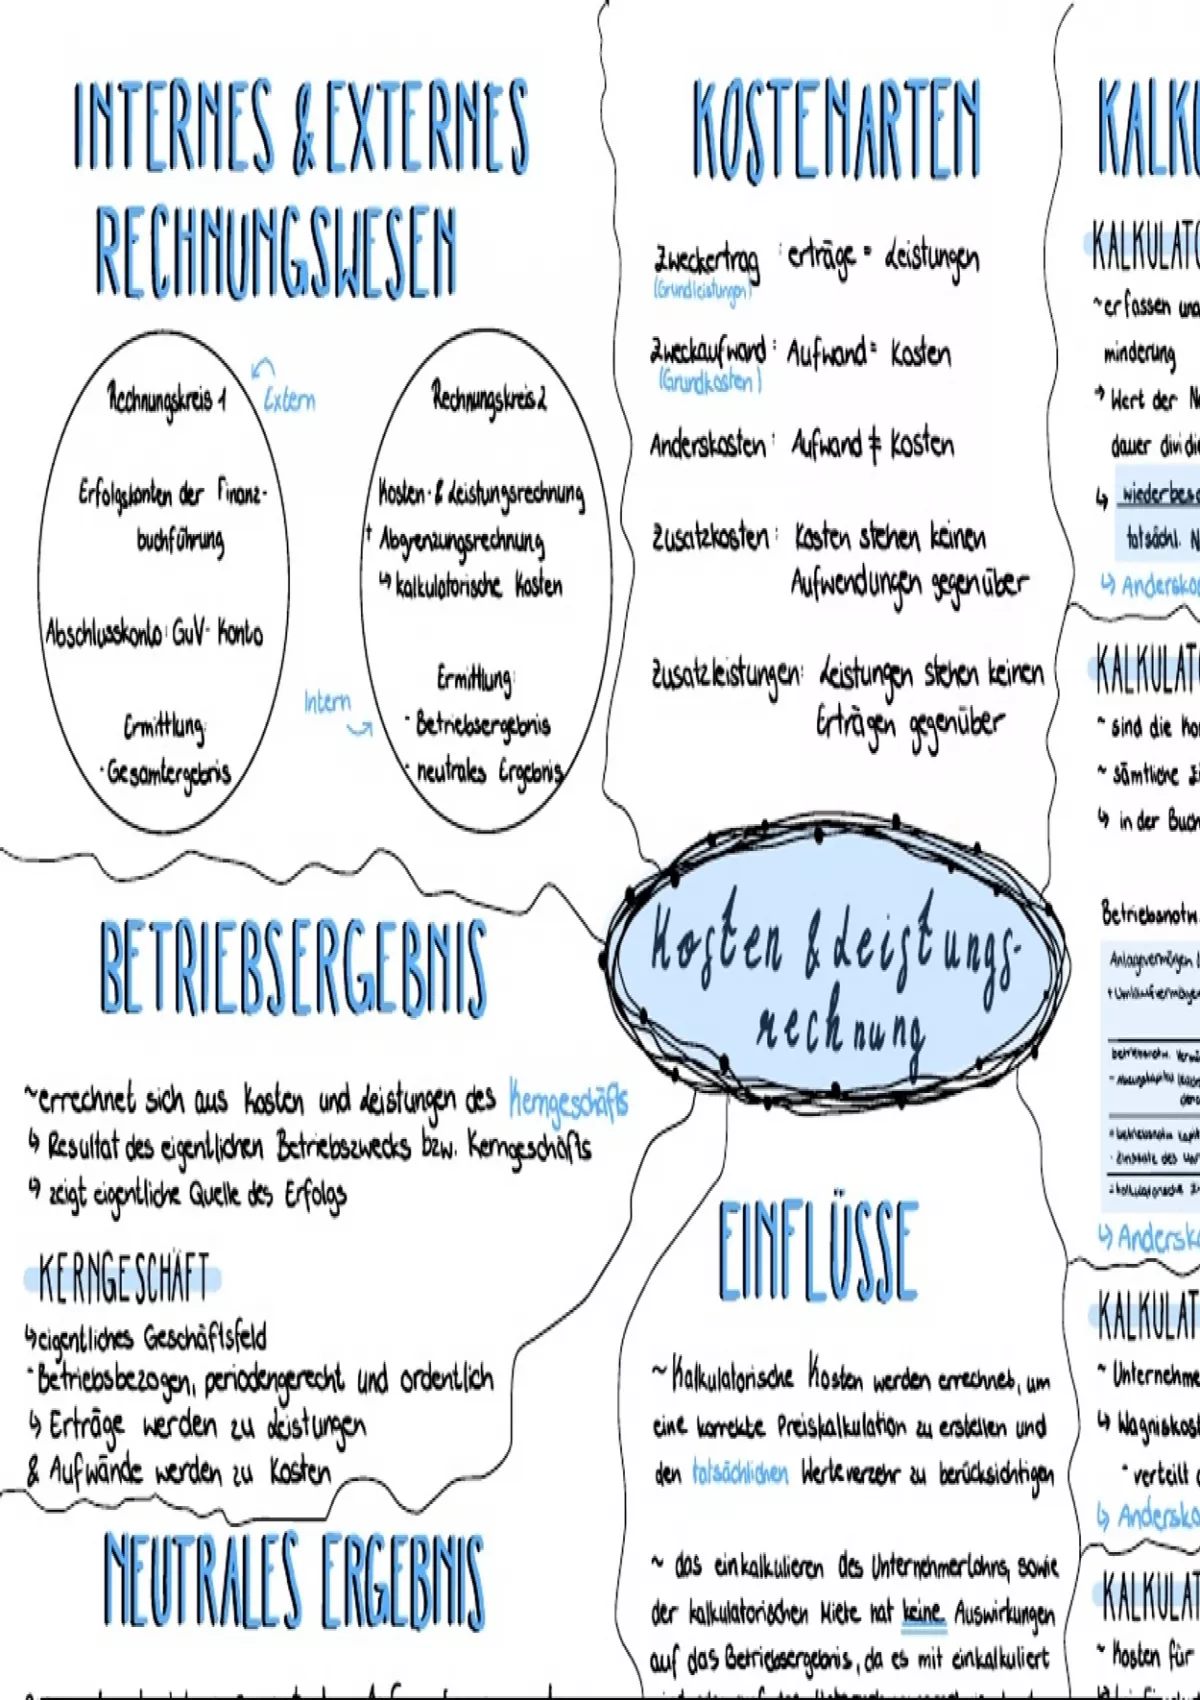 INTERNES & EXTERNES
RECHNUNGSWESEN
Rechnungskreis 1
Extern
Erfolgskonten der Finanz-
buchführung
Abschlusskonto: GuV-Konto
Ermittlung:
· Gesamtergebnis
Rechnungskreis 2
Kosten- & Leistungsrechnung
+ Abgrenzungsrechnung
↳ kalkulatorische Kosten
Intern
Ermittlung:
· Betriebsergebnis
· neutrales Ergebnis
KOSTENARTEN
Zweckertrag : erträge = Leistungen
(Grundleistungen)
Zweckaufwand : Aufwand = Kosten
(Grundkosten)
Anderskosten : Aufwand ≠ Kosten
Zusatzkosten : Kosten stehen keinen
Aufwendungen gegenüber
Zusatzleistungen: Leistungen stehen keinen
Erträgen gegenüber
Kosten & Leistungs-
rechnung
BETRIEBSERGEBNIS
~errechnet sich aus Kosten und Leistungen des Kerngeschäfts
↳ Resultat des eigentlichen Betriebszwecks bzw. Kerngeschäfts
↳ zeigt eigentliche Quelle des Erfolgs
KERNGESCHÄFT
↳eigentliches Geschäftsfeld
· Betriebsbezogen, periodengerecht und ordentlich
↳ Erträge werden zu Leistungen
& Aufwände werden zu Kosten
NEUTRALES ERGEBNIS
EINFLÜSSE
~ Kalkulatorische Kosten werden errechnet, um
eine korrekte Preiskalkulation zu erstellen und
den tatsächlichen Werteverzehr zu berücksichtigen
~ das einkalkulieren des Unternehmerlohns, sowie
der kalkulatorischen Miete hat keine Auswirkungen
auf das Betriebsergebnis, da es mit einkalkuliert
KALKU
KALKULATO
~erfassen und
minderung
→ Wert der N
dauer dividie
↳ wiederbesc
tatsächl. N
↳ Andersko
KALKULAT
~ sind die Ko
~ sämtliche
↳ in der Buch
Betriebsnotw.
Anlagevermögen
+ Umlaufvermögen
betriebsnotw. Vermö
↳ Andersk
KALKULAT
~ Unternehme
↳ Wagniskos
· verteilt
↳ Andersko
KALKULAT
~ Kosten für